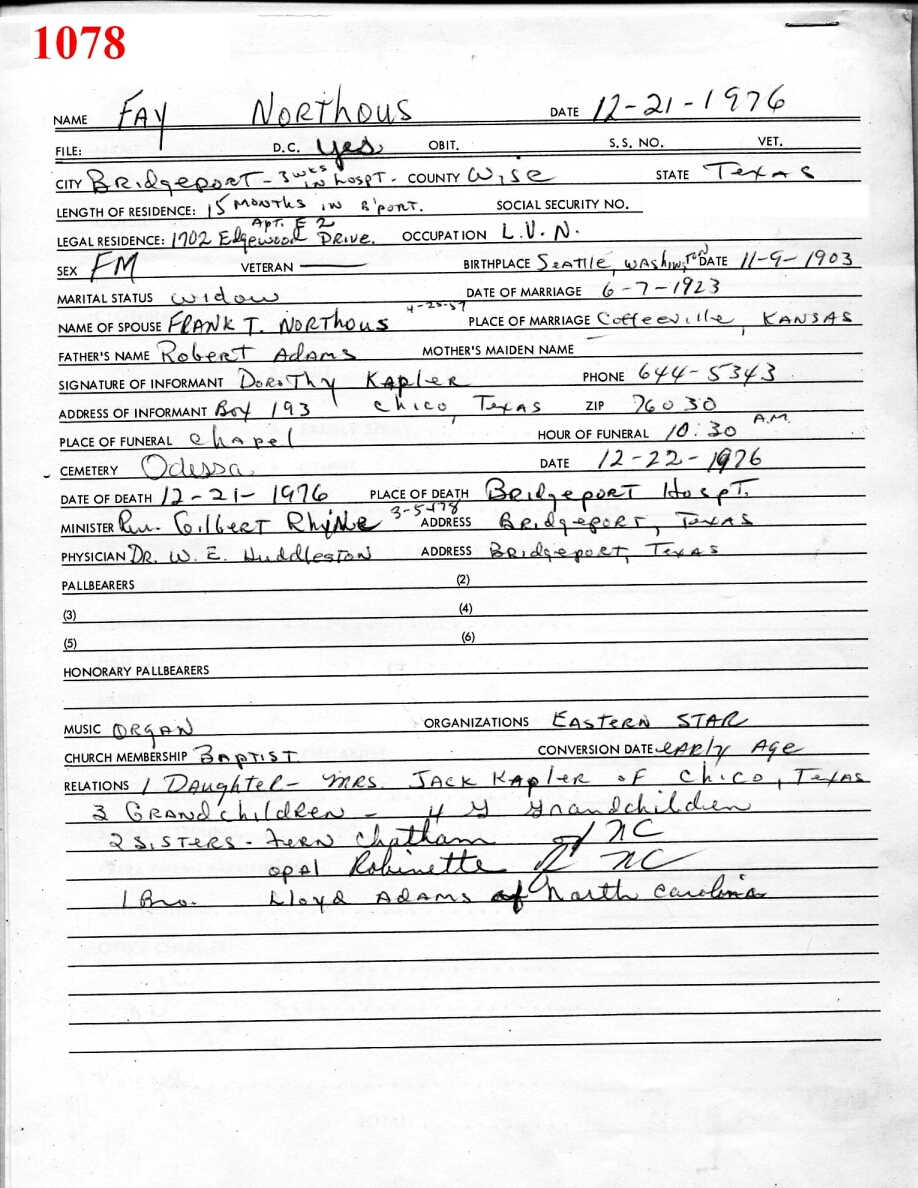 1078
NAME FAY NORTHOUS DATE 12-21-1976
FILE: D.C. Yes OBIT. S.S. NO. VET.
CITY BRidgePORT - 3 wks IN hospt. COUNTY Wise STATE Texas
LENGTH OF RESIDENCE: 15 MONTHS IN B'PORT. SOCIAL SECURITY NO.
Apt. E 2
LEGAL RESIDENCE: 1702 Edgewood DRIVE. OCCUPATION L.V.N.
SEX FM VETERAN —— BIRTHPLACE SEATTLE, WASHINGTON DATE 11-9-1903
MARITAL STATUS widow DATE OF MARRIAGE 6-7-1923
4-25-57
NAME OF SPOUSE FRANK T. NORTHOUS PLACE OF MARRIAGE Coffeeville, KANSAS
FATHER'S NAME Robert Adams MOTHER'S MAIDEN NAME —
SIGNATURE OF INFORMANT DOROTHY KAPLER PHONE 644-5343
ADDRESS OF INFORMANT Box 193 Chico, Texas ZIP 76030
PLACE OF FUNERAL Chapel HOUR OF FUNERAL 10:30 A.M.
CEMETERY Odessa DATE 12-22-1976
DATE OF DEATH 12-21-1976 PLACE OF DEATH BRIDGEPORT HOSPT.
MINISTER Rev. GILBERT Rhyne ADDRESS BRIDGEPORT, TEXAS
PHYSICIAN DR. W. E. Huddleston ADDRESS BRIDGEPORT, TEXAS
PALLBEARERS (2)
(3) (4)
(5) (6)
HONORARY PALLBEARERS
MUSIC ORGAN ORGANIZATIONS EASTERN STAR
CHURCH MEMBERSHIP BAPTIST CONVERSION DATE eARly Age
RELATIONS 1 Daughter - MRS. JACK KAPLER OF Chico, Texas
3 GRANdchildREN - 4 G Grandchildren
2 SISTERS - FERN Chatham of NC
opal Robinette of NC
1 Bro. Lloyd ADAMS of North Carolina